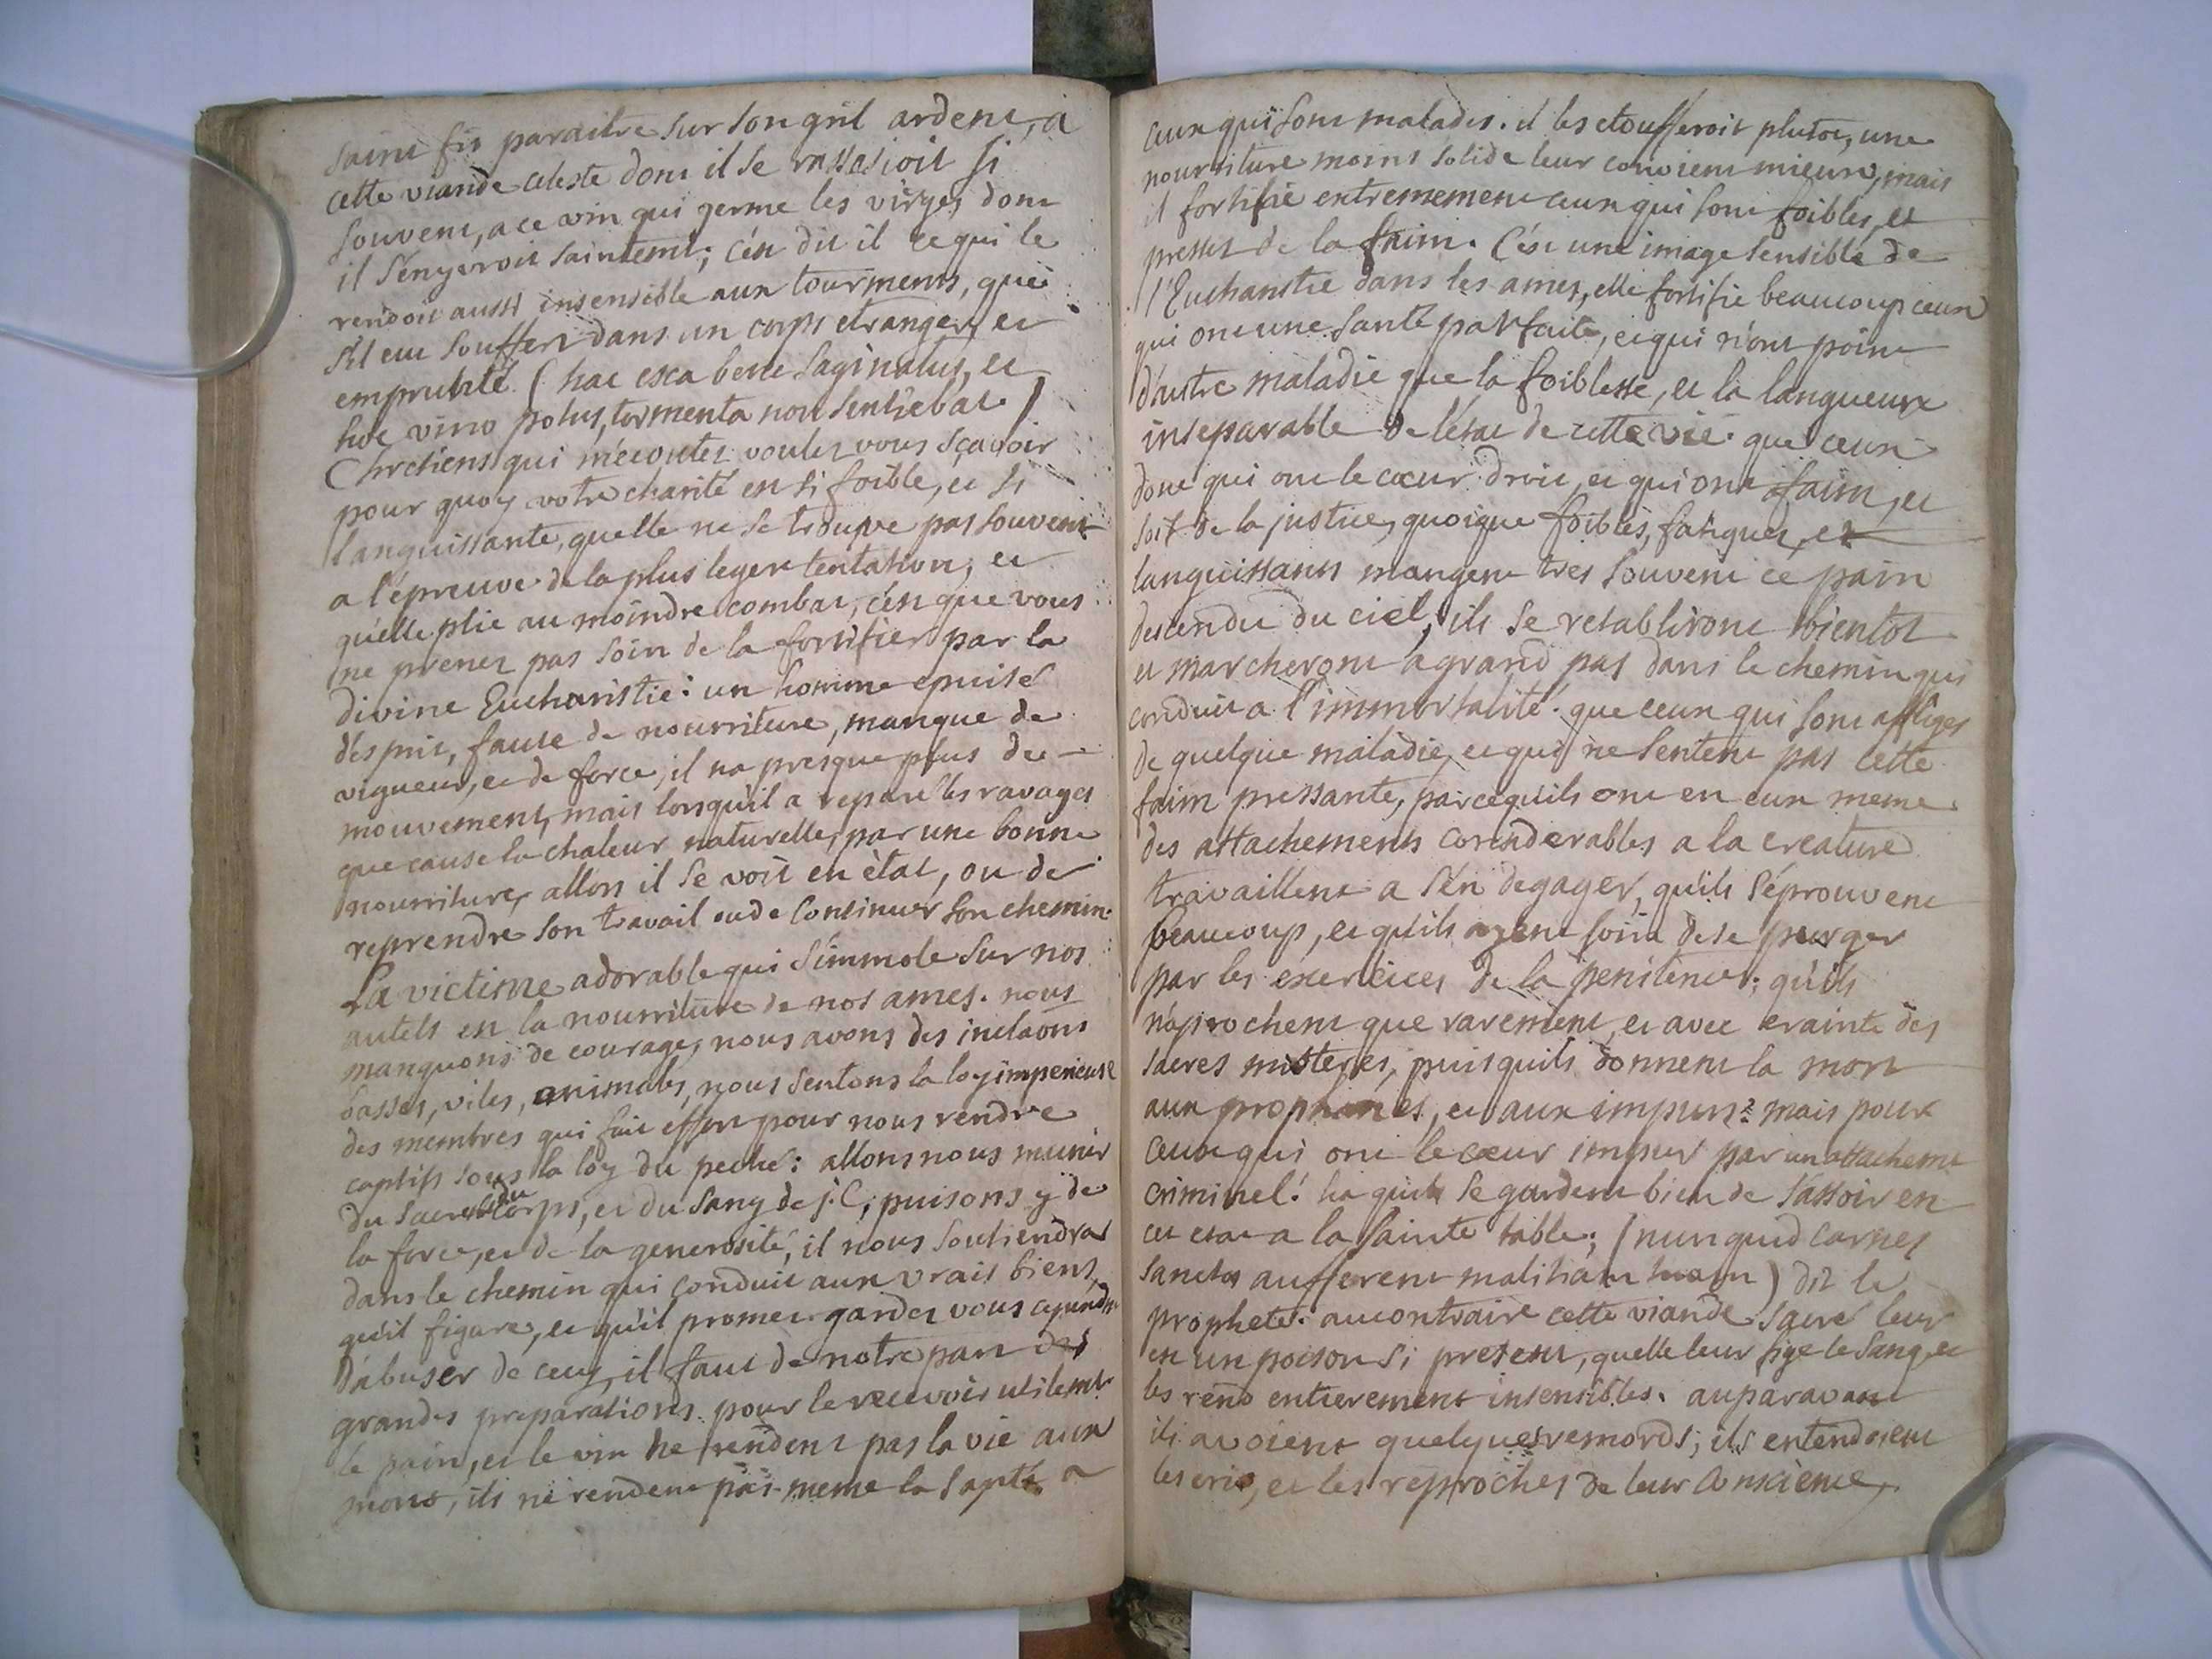 saint fit paraitre sur son gril ardent, a
cette viande celeste dont il se rassasioit si
souvent, a ce vin qui germe les virges dont
il s'enyvroit saintemt; c'est dit il ce qui le
rendoit aussi insensible aux tourments, que
s'il eut souffert dans un corps etranger et
emprunté (hac esca bene saginatus, et
hoc vino potus, tormenta non sentiebat)
Chretiens qui m'ecoutez voulez vous sçavoir
pour quoy votre charité est si foible, et si
languissante, quelle ne se trouve pas souvent
a l'épreuve de la plus legere tentation, et
qu'elle plie au moindre combat, c'est que vous
ne prenez pas soin de la fortifier par la
divine Eucharistie: un homme epuisé
d'esprit, faute de nourriture, manque de
vigueur, et de force, il na presque plus de
mouvement, mais lorsqu'il a reparé les ravages
que cause la chaleur naturelle, par une bonne
nourriture, allors il se voit en ètat, ou de
reprendre son travail ou de continuer son chemin.
La victime adorable qui s'immole sur nos
autels est la nourriture de nos ames. nous
manquons de courage, nous avons des inclaons
basses, viles, animales, nous sentons la loy imperieuse
des membres qui fait effort pour nous rendre
captifs sous la loy du peché: allons nous munir
du sacré corps, et du sang de j. C; puisons y de
la force, et de la generosité, il nous soutiendra
dans le chemin qui conduit aux vrais biens
qu'il figure, et qu'il promet. gardez vous cependt
d'abuser de ceci, il faut de notre part des
grandes preparations pour le recevoir utilemt
le pain, et le vin ne rendent pas la vie aux
morts, ils ne rendent pas meme la santé a
ceux qui sont malades. il les etoufferoit plutot, une
nourriture moins solide leur convient mieux, mais
il fortifie extremement ceux qui sont foibles, et
pressez de la faim. C'est une image sensible de
l'Eucharistie dans les ames, elle fortifie beaucoup ceux
qui ont une santé parfaite, et qui n'ont point
d'autre maladie que la foiblesse, et la langueure
inseparable de l'état de cette vie. que ceux
donc qui ont le cœur droit, et qui ont faim, et
soif de la justice, quoique foibles, fatiguez, et
languissants mangent tres souvent ce pain
descendu du ciel, ils se retabliront bientot
et marcheront a grand pas dans le chemin qui
conduit a l'immortalité: que ceux qui sont affligez
de quelque maladie, et qui ne sentent pas cette
faim pressante, parcequ'ils ont en eux meme
des attachements considerables a la creature
travaillent a s'en degager, qu'ils s'éprouvent
beaucoup, et qu'ils ayent soin de se purger
par les exercices de la penitence; qu'ils
n'aprochent que rarement, et avec crainte des
sacres misteres, puis quils donnent la mort
aux prophanes, et aux impurs: mais pour
ceux qui ont le cœur impur par un attachemt
criminel! ha qu'ils se gardent bien de s'assoir en
cet etat a la sainte table; (nunquid carnes
sanctas aufferent malitiam tuam) dit le
prophete. au contraire cette viande sacré leur
est un poison si present, quelle leur fige le sang, et
les rend entierement insensibles. auparavant
ils avoient quelques remords; ils entendoient
les cris, et les reproches de leur conscience,